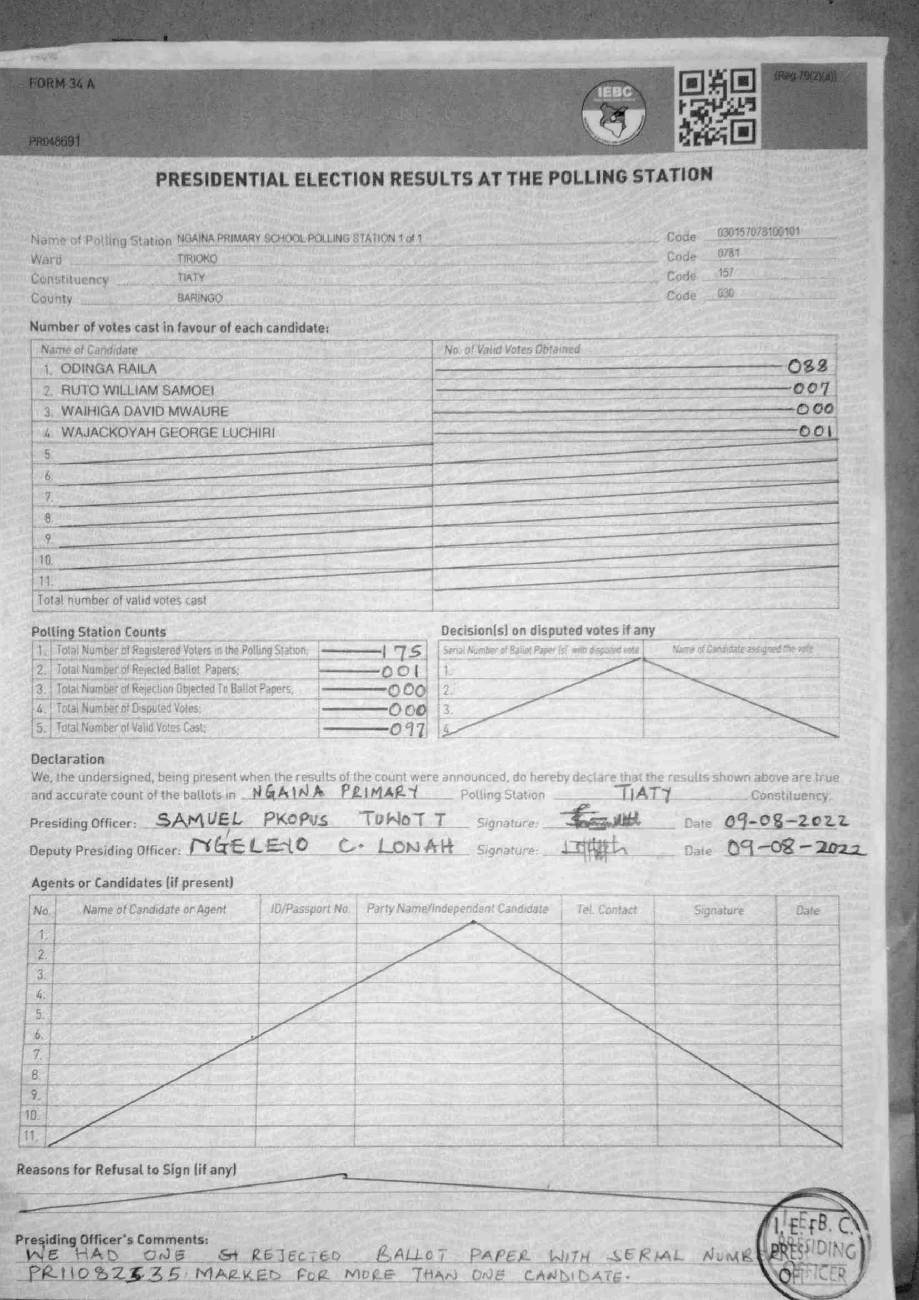 FORM 34 A
IEBC
(Reg.79(2)(a))
PR048691
PRESIDENTIAL ELECTION RESULTS AT THE POLLING STATION
Name of Polling Station NGAINA PRIMARY SCHOOL POLLING STATION 1 of 1 Code 030157078100101
Ward TIRIOKO Code 0781
Constituency TIATY Code 157
County BARINGO Code 030
Number of votes cast in favour of each candidate:
Name of Candidate No. of Valid Votes Obtained
1. ODINGA RAILA 088
2. RUTO WILLIAM SAMOEI 007
3. WAIHIGA DAVID MWAURE 000
4. WAJACKOYAH GEORGE LUCHIRI 001
5.
6.
7.
8.
9.
10.
11.
Total number of valid votes cast
Polling Station Counts
1. Total Number of Registered Voters in the Polling Station; 175
2. Total Number of Rejected Ballot Papers; 001
3. Total Number of Rejection Objected To Ballot Papers; 000
4. Total Number of Disputed Votes; 000
5. Total Number of Valid Votes Cast; 097
Decision(s) on disputed votes if any
Serial Number of Ballot Paper (s) with disputed vote Name of Candidate assigned the vote
1.
2.
3.
4.
Declaration
We, the undersigned, being present when the results of the count were announced, do hereby declare that the results shown above are true
and accurate count of the ballots in NGAINA PRIMARY Polling Station TIATY Constituency.
Presiding Officer: SAMUEL PKOPUS TUWOTT Signature: Date 09-08-2022
Deputy Presiding Officer: C. LONAH Signature: Date 09-08-2022
Agents or Candidates (if present)
No. Name of Candidate or Agent ID/Passport No. Party Name/Independent Candidate Tel. Contact Signature Date
1.
2.
3.
4.
5.
6.
7.
8.
9.
10.
11.
Reasons for Refusal to Sign (if any)
Presiding Officer's Comments:
WE HAD ONE REJECTED BALLOT PAPER WITH SERIAL
MARKED FOR MORE THAN ONE CANDIDATE.
I.E.B.C.
PRESIDING
OFFICER